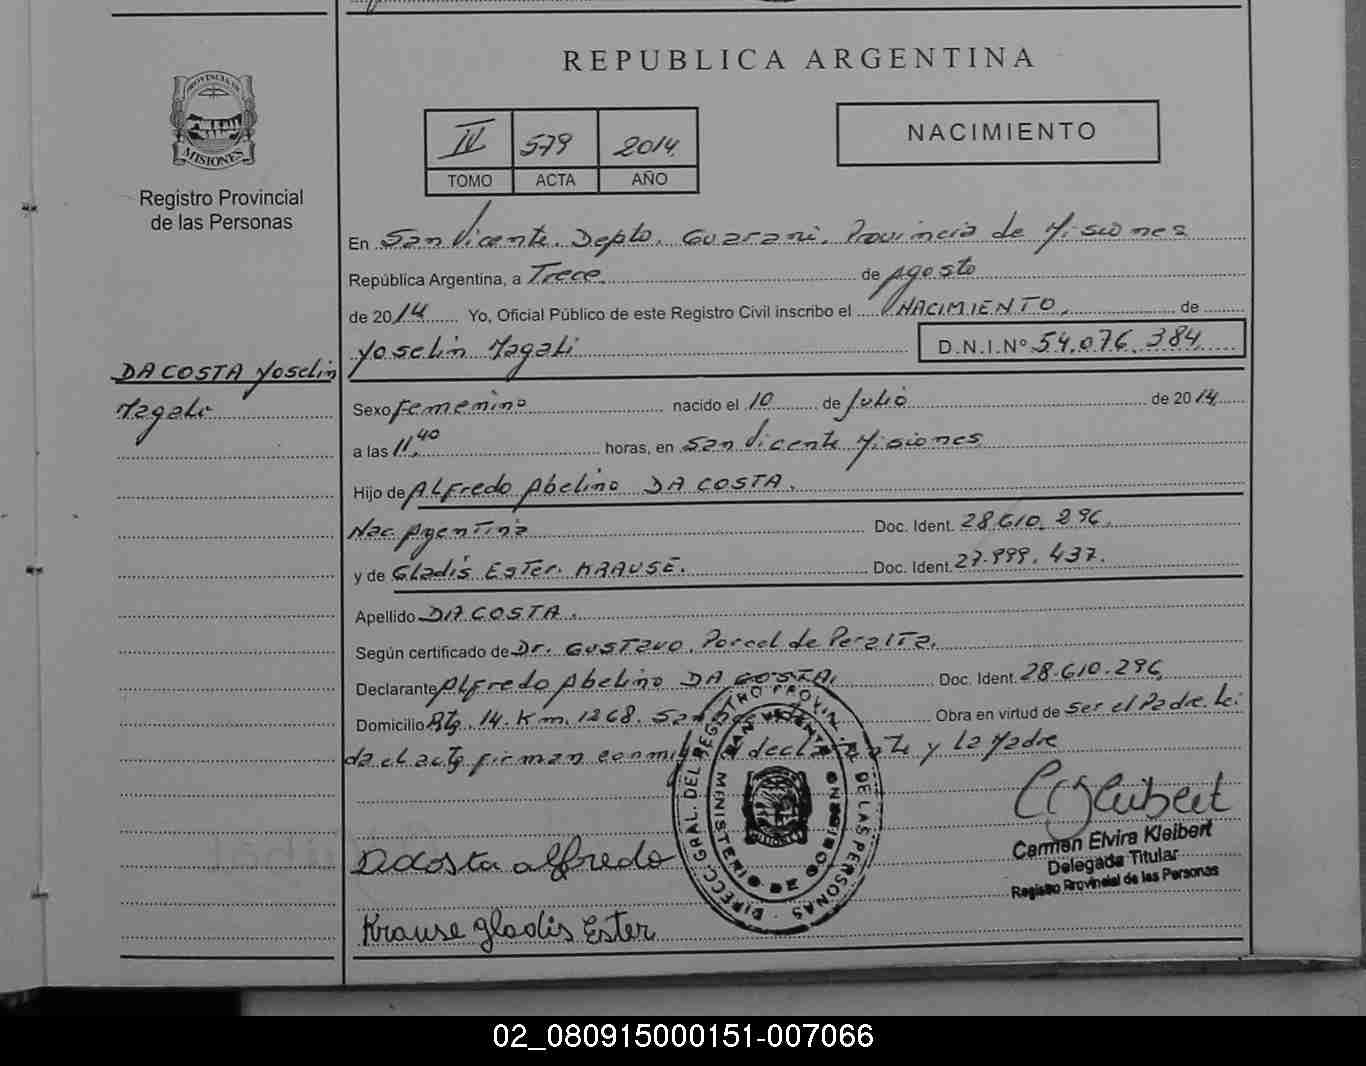 REPUBLICA ARGENTINA
PROVINCIA DE
MISIONES
Registro Provincial
de las Personas
IV 579 2014
TOMO ACTA AÑO
NACIMIENTO
En San Vicente. Depto. Guarani. Provincia de Misiones
República Argentina, a Trece. de Agosto
de 2014 Yo, Oficial Público de este Registro Civil inscribo el NACIMIENTO, de
Yoselin Magali D.N.I.Nº 54.076.384
DA COSTA Yoselin
Magali
Sexo Femenino nacido el 10 de Julio de 2014
a las 11,40 horas, en San Vicente Misiones
Hijo de Alfredo Abelino DA COSTA.
Nac. Agentina Doc. Ident. 28.610.296.
y de Gladis Ester. KRAUSE. Doc. Ident. 27.999.437.
Apellido DA COSTA.
Según certificado de Dr. Gustavo. Porcel de Peralta.
Declarante Alfredo Abelino DA COSTA. Doc. Ident. 28.610.296
Domicilio Rta. 14. Km. 1268. San Obra en virtud de ser el Padre. Lei
da el acta firman conmigo declarante y la Madre
DIRECC. GRAL. DEL REGISTRO PROVIN. DE LAS PERSONAS
SAN VICENTE
MINISTERIO DE GOBIERNO
CEKleibert
Carmen Elvira Kleibert
Delegada Titular
Registro Provincial de las Personas
Dacosta alfredo
Krause gladis Ester
02_080915000151-007066